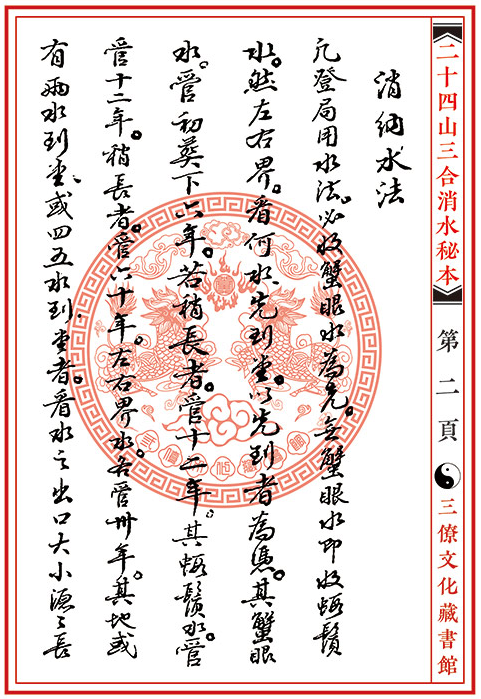 二十四山三合消水秘本
第二頁
三僚文化藏書館
消納水法
凡登局用水法。必收蟹眼水為先。無蟹眼水即收蝦鬚
水。然左右界。看何水先到堂。以先到者為憑。其蟹眼
水。管初葬下六年。若稍長者。管十二年。其蝦鬚水。管
管十二年。稍長者。管六十年。左右界水各管卅年。其地或
有兩水到堂、或四五水到堂者。看水之出口大小源之長